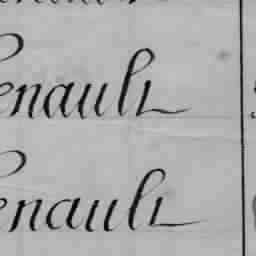 enault
enault